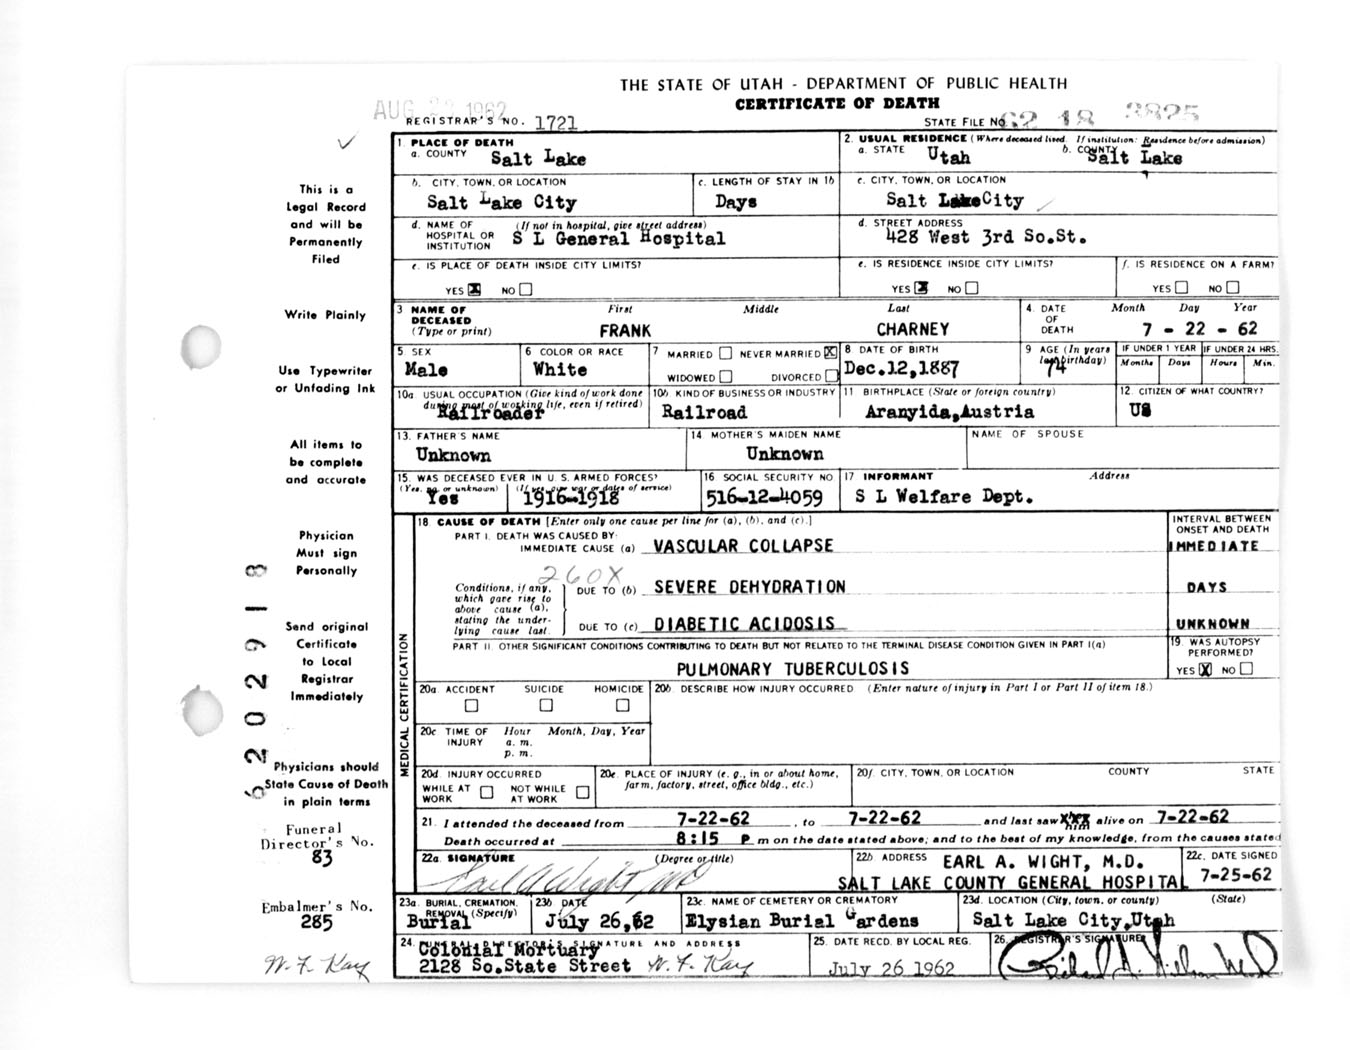 THE STATE OF UTAH - DEPARTMENT OF PUBLIC HEALTH
CERTIFICATE OF DEATH
AUG 1962
REGISTRAR'S NO. 1721
STATE FILE NO. 62 18 3825
1. PLACE OF DEATH
a. COUNTY Salt Lake
2. USUAL RESIDENCE (Where deceased lived. If institution: Residence before admission)
a. STATE Utah b. COUNTY Salt Lake
b. CITY, TOWN, OR LOCATION
Salt Lake City
c. LENGTH OF STAY IN 1b
Days
c. CITY, TOWN, OR LOCATION
Salt Lake City
d. NAME OF HOSPITAL OR INSTITUTION (If not in hospital, give street address)
S L General Hospital
d. STREET ADDRESS
428 West 3rd So.St.
e. IS PLACE OF DEATH INSIDE CITY LIMITS?
YES X NO
e. IS RESIDENCE INSIDE CITY LIMITS?
YES X NO
f. IS RESIDENCE ON A FARM?
YES NO
3 NAME OF DECEASED (Type or print)
First Middle Last
FRANK CHARNEY
4. DATE OF DEATH
Month Day Year
7 - 22 - 62
5 SEX
Male
6 COLOR OR RACE
White
7 MARRIED NEVER MARRIED X
WIDOWED DIVORCED
8 DATE OF BIRTH
Dec.12,1887
9 AGE (In years last birthday)
74
IF UNDER 1 YEAR
Months Days
IF UNDER 24 HRS.
Hours Min.
10a. USUAL OCCUPATION (Give kind of work done during most of working life, even if retired)
Railroader
10b KIND OF BUSINESS OR INDUSTRY
Railroad
11 BIRTHPLACE (State or foreign country)
Aranyida,Austria
12. CITIZEN OF WHAT COUNTRY?
US
13. FATHER'S NAME
Unknown
14 MOTHER'S MAIDEN NAME
Unknown
NAME OF SPOUSE
15. WAS DECEASED EVER IN U.S. ARMED FORCES?
(Yes, no, or unknown) (If yes, give war or dates of service)
Yes 1916-1918
16 SOCIAL SECURITY NO
516-12-4059
17 INFORMANT Address
S L Welfare Dept.
MEDICAL CERTIFICATION
18. CAUSE OF DEATH [Enter only one cause per line for (a), (b), and (c).]
INTERVAL BETWEEN ONSET AND DEATH
PART I. DEATH WAS CAUSED BY:
IMMEDIATE CAUSE (a) VASCULAR COLLAPSE IMMEDIATE
260X
Conditions, if any, which gave rise to above cause (a), stating the underlying cause last.
DUE TO (b) SEVERE DEHYDRATION DAYS
DUE TO (c) DIABETIC ACIDOSIS UNKNOWN
PART II. OTHER SIGNIFICANT CONDITIONS CONTRIBUTING TO DEATH BUT NOT RELATED TO THE TERMINAL DISEASE CONDITION GIVEN IN PART I(a)
PULMONARY TUBERCULOSIS
19. WAS AUTOPSY PERFORMED?
YES X NO
20a. ACCIDENT SUICIDE HOMICIDE
20b. DESCRIBE HOW INJURY OCCURRED (Enter nature of injury in Part I or Part II of item 18.)
20c TIME OF INJURY Hour Month, Day, Year
a. m.
p. m.
20d. INJURY OCCURRED
WHILE AT WORK NOT WHILE AT WORK
20e. PLACE OF INJURY (e. g., in or about home, farm, factory, street, office bldg., etc.)
20f. CITY, TOWN, OR LOCATION COUNTY STATE
21. I attended the deceased from 7-22-62, to 7-22-62 and last saw him alive on 7-22-62
Death occurred at 8:15 P m on the date stated above; and to the best of my knowledge, from the causes stated
22a. SIGNATURE (Degree or title)
Earl A Wight MD
22b ADDRESS EARL A. WIGHT, M.D.
SALT LAKE COUNTY GENERAL HOSPITAL
22c. DATE SIGNED
7-25-62
23a. BURIAL, CREMATION, REMOVAL (Specify)
Burial
23b DATE
July 26,62
23c. NAME OF CEMETERY OR CREMATORY
Elysian Burial Gardens
23d. LOCATION (City, town, or county) (State)
Salt Lake City,Utah
24. FUNERAL DIRECTOR'S SIGNATURE AND ADDRESS
Colonial Mortuary
2128 So.State Street W. F. Kay
25. DATE RECD. BY LOCAL REG.
July 26 1962
26. REGISTRAR'S SIGNATURE
This is a
Legal Record
and will be
Permanently
Filed
Write Plainly
Use Typewriter
or Unfading Ink
All items to
be complete
and accurate
Physician
Must sign
Personally
Send original
Certificate
to Local
Registrar
Immediately
Physicians should
State Cause of Death
in plain terms
Funeral
Director's No.
83
Embalmer's No.
285
W. F. Kay
62 02918